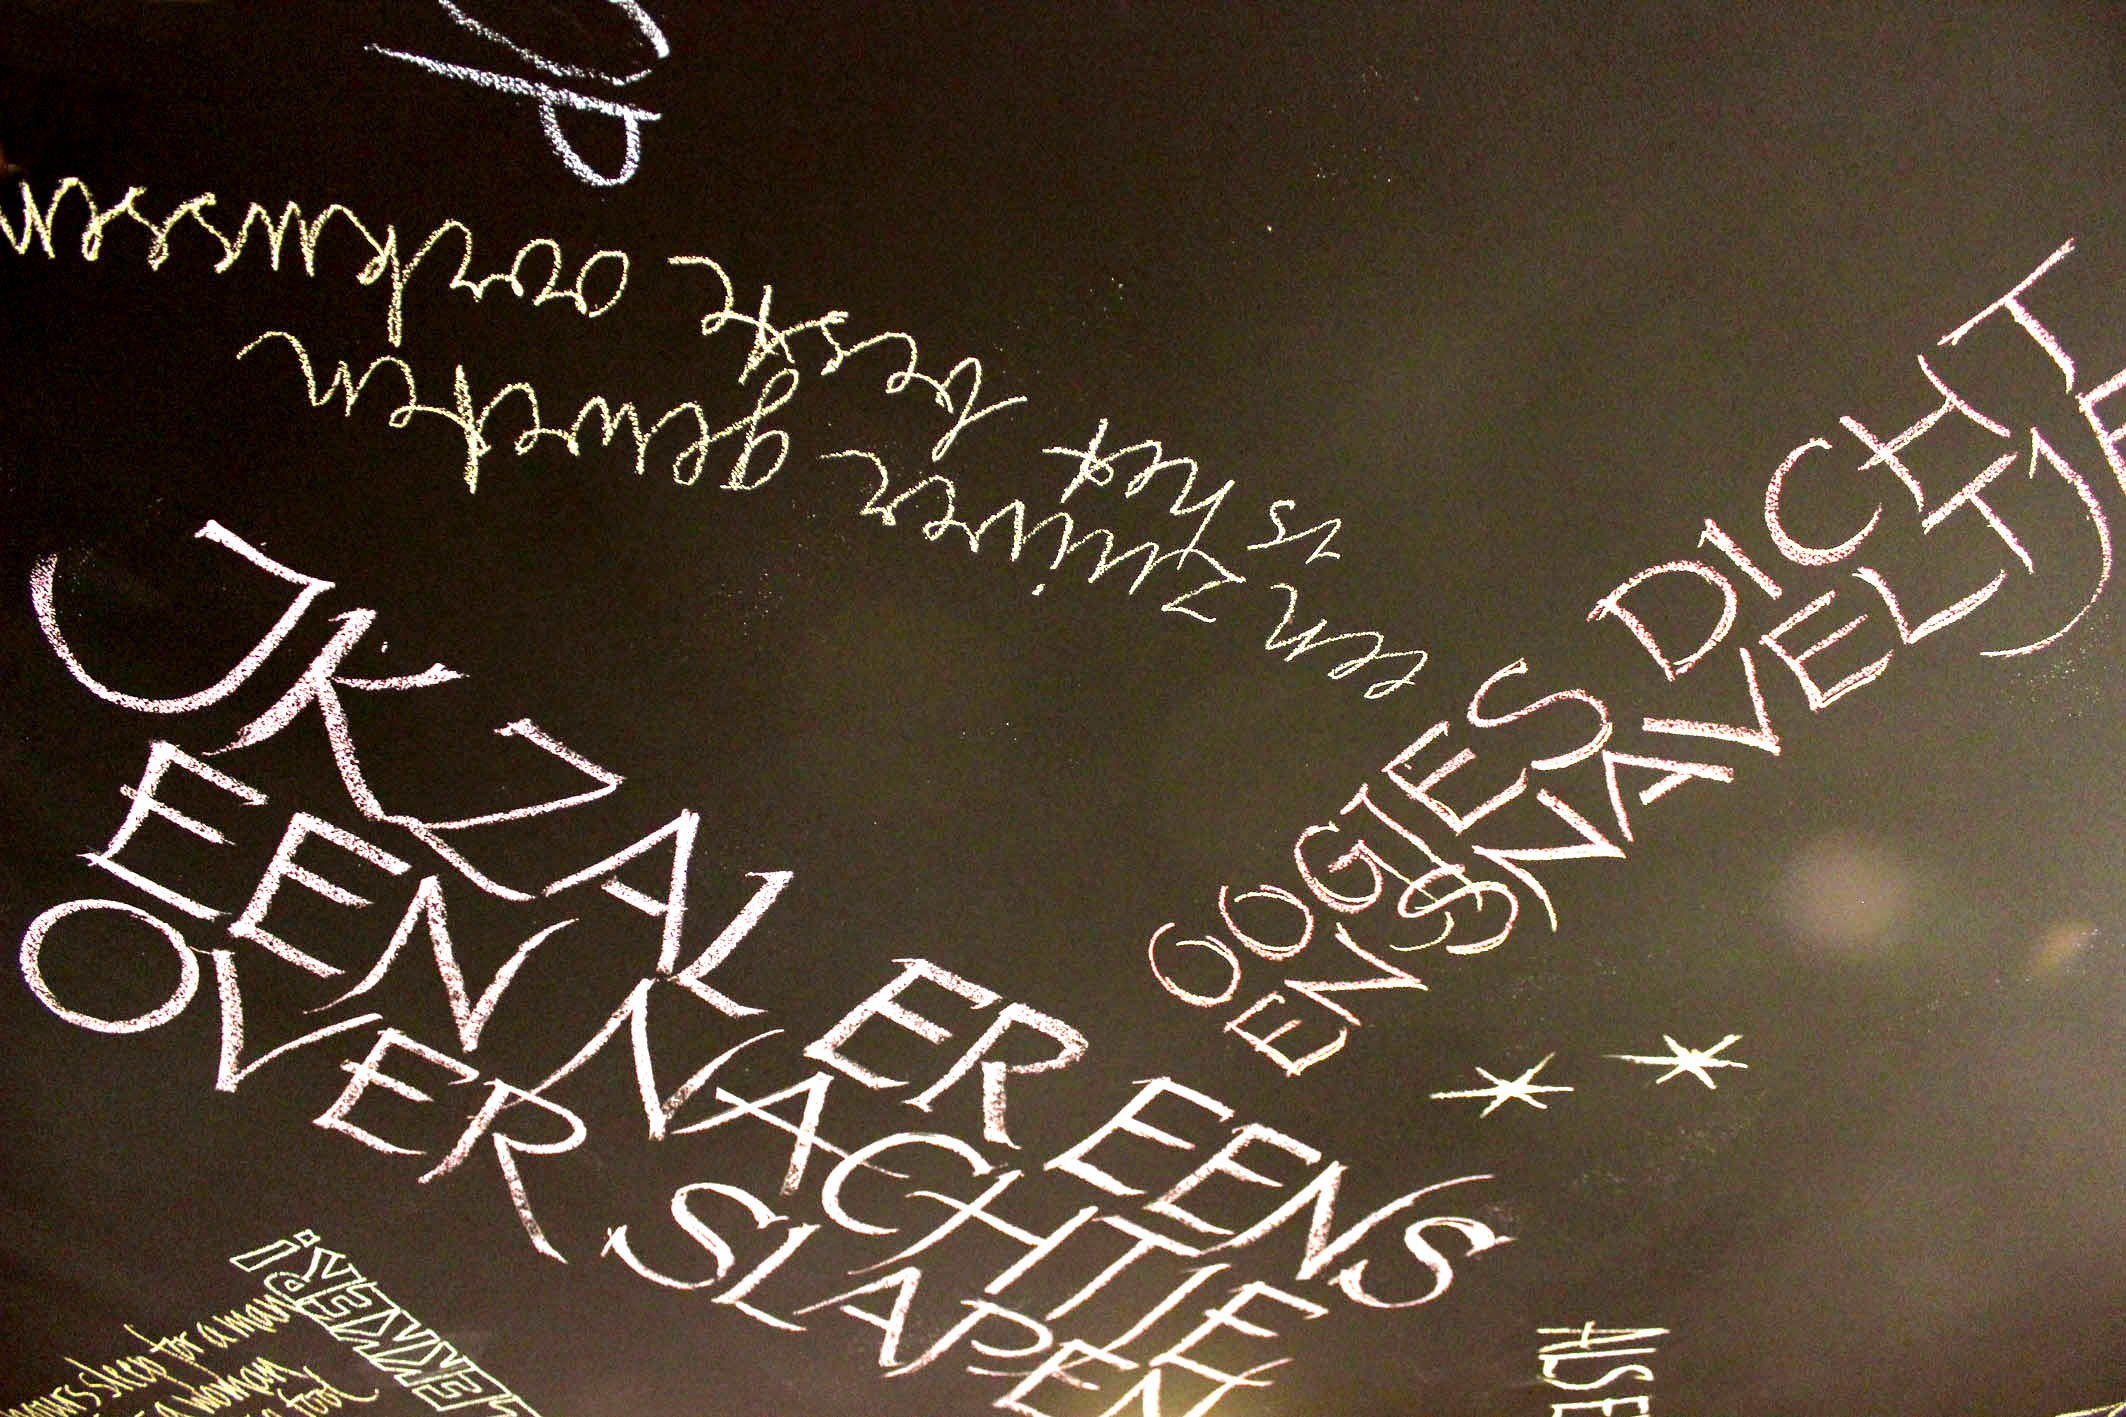 een zuiver geweten
is het beste oorkussen
OOGIES DICHT
EN SNAVELTJE
IK ZAL ER EENS
EEN NACHTJE
OVER SLAPEN
LEKKER!
hours sleep for a man
a woman
a fool
ALSE